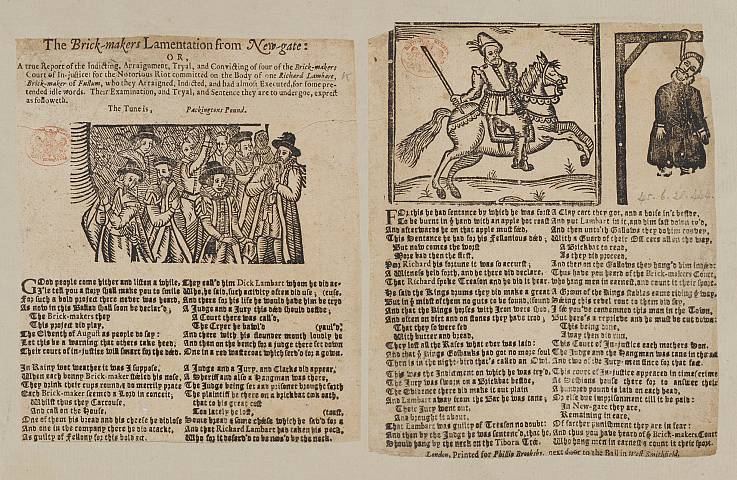 The Brick-makers Lamentation from New-gate:
OR,
A true Report of the Indicting, Arraignment, Tryal, and Convicting of four of the Brick-makers
Court of In-justice for the Notorious Riot committed on the Body of one Richard Lambart,
Brick-maker of Fullam, who they Arraigned, Indicted, and had almost Executed, for some pre-
tended idle words. Their Examination, and Tryal, and Sentence they are to undergo, exprest
as followeth.
The Tune is, Packingtons Pound.
GOod people come hither and listen a while,
I'le tell you a story shall make you to smile
For such a bold project there never was heard,
As now in this Ballad shall soon be declar'd;
The Brick-makers they
This project did play,
The Eleventh of August as people do say:
Let this be a warning that others take heed;
Their court of in-justice will smart for the deed.
In Rainy wet weather it was I suppose,
When each bonny Brick-maker dasht his nose,
They drink their cups round, & do merrily prate
Each Brick-maker seemed a Lord in conceit,
Whilst thus they Carrouse,
And call on the House,
One of them his bread and his cheese he did lose
And one in the company there he did attack,
As guilty of Fellony for this bold act.
They call'd him Dick Lambart whom he did ac-
Who, he said, such activity often did use; (cuse,
And there for his life he would have him be try'd
A Judge and a Jury this deed should decide;
A Court there was call'd,
The Cryer he bawl'd (yaul'd,
And there with his slounder mouth loudly he
And then on the bench for a judge there set down
One in a red wastcoat which serv'd for a gown.
A Judge and a Jury, and Clarks did appear,
A Sheriff and also a Hangman was there,
The Judge being set and prisoner brought forth
The plaintiff he there on a brickbat took oath,
that to his great cost
Too lately he lost, (toast,
Some bread & some cheese which he serv'd for a
And that Richard Lambart had taken his peck,
Who for it deserv'd to be nos'd by the neck.
FOr this he had sentance by which he was forst
To be burnt in ye hand with an apple hot roast
And afterwards he on that apple must feed,
This Sentence he had for his Fellonious deed;
But now comes the worst
More bad then the first,
Poor Richard his fortune it was so accurst;
A Witness hold forth, and he there did declare,
That Richard spoke Treason and he did it hear.
He said the Kings
But in ye midst of them no guts to be found,
And that the Kings horses with Iron were shod,
And often on dirt and on stones they have trod;
That they so were fed
With butter and bread,
They left all the Rats what ever was laid:
And that ye Kings Goshauks had got no more
Then is in the night-bird that's called an Owl.
This was the Indictment on which he was try'd,
The Jury was sworn on a Brickbat beside,
The Evidence there did make it out plain
And Lambart away from the Bar he was tane;
Their Jury went out,
And brought it about,
That Lambart was guilty of Treason no doubt:
And then by the Judge he was sentenc'd, that he
Should hang by the neck on the Tiborn Tree.
A Clay cart they got, and a horse in's bestow,
And put Lambart in it, and him fast being ty'd,
And then unto th' Gallows they do him convey,
With a Guard of their Officers all on the way,
A Brickbat to read,
As they did proceed,
And then on the Gallows they hang'd him indeed:
Thus have you heard of the Brick-makers Court,
who hang men in earnest, and count it their sport.
A Groom of the Kings stables came riding that way,
Seeing this revel rout to them did say,
I see you've condemned this man in the Town,
But here's a reprieve and he must be cut down:
This being done,
Away then did run,
This Court of In-justice each mothers Son.
The Judge and the Hangman was tane in the
And two of the Jury-men since for that fact.
This court of In-justice appeared in time
At Sessions house there for to answer their
A hundred pound is laid on each head,
Or else due imprisonment till it be paid:
In New-gate they are,
Remaining in care,
Of further punishment they are in fear:
And thus you have heard of ye Brick-makers Court
Who hang men in earnest & count it their sport.
London, Printed for Phillip Brooksby, next door to the Ball in West Smithfield.